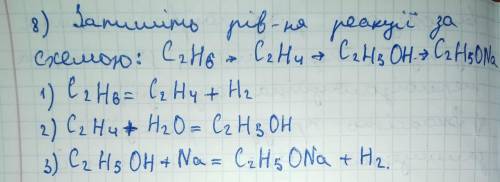 8) Запишіть рів-ня реакції за
схемою: C2H6 → C2H4 → C2H5OH → C2H5ONa
1) C2H6 = C2H4 + H2
2) C2H4 + H2O = C2H5OH
3) C2H5OH + Na = C2H5ONa + H2.